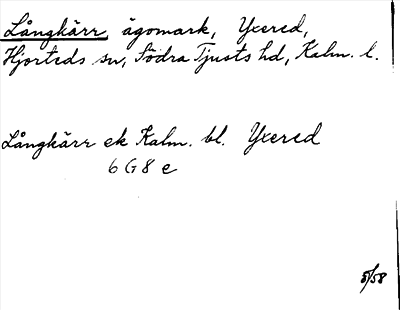 Långkärr ägomark, Yxered,
Hjorteds sn, Södra Tjusts hd, Kalm. l.
Långkärr ek Kalm. bl. Yxered
6 G 8 e
5/58